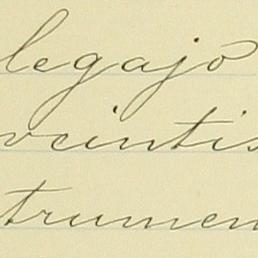 legajo
veintis
trumen